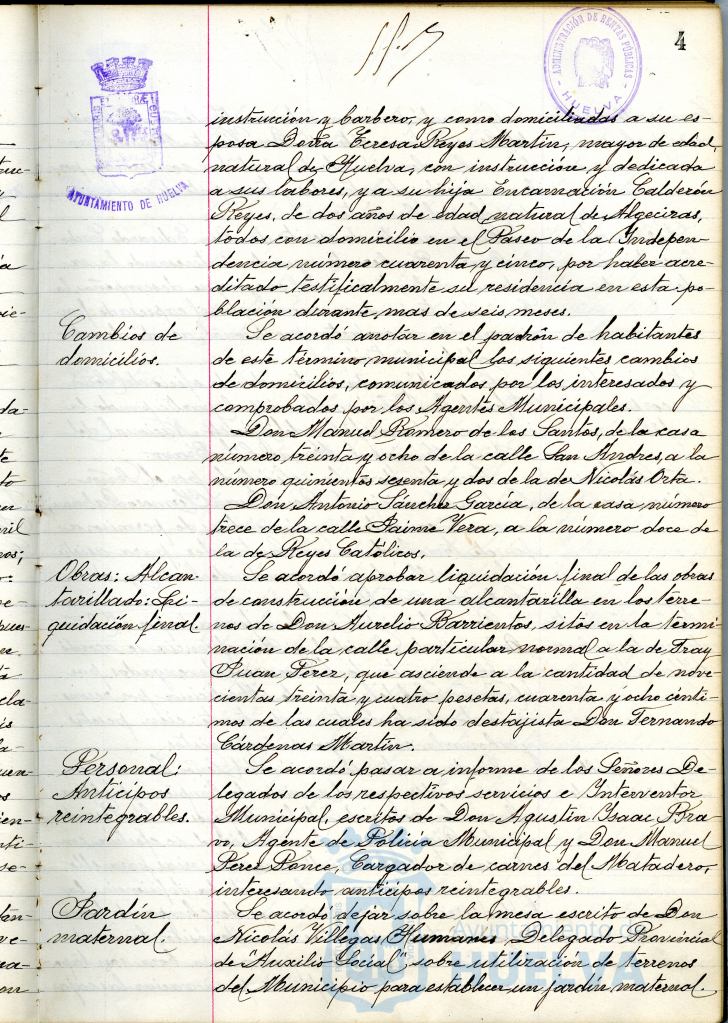 4
ADMINISTRACIÓN DE RENTAS PÚBLICAS
HUELVA
AYUNTAMIENTO DE HUELVA
instrucción y barbero, y como domiciliadas a su es-
posa Doña Teresa Reyes Martín, mayor de edad,
natural de Huelva, con instrucción y dedicada
a sus labores, y a su hija Encarnación Calderón
Reyes, de dos años de edad natural de Algeciras,
todos con domicilio en el Paseo de la Indepen-
dencia número cuarenta y cinco, por haber acre-
ditado testificalmente su residencia en esta po-
blación durante mas de seis meses.
Cambios de
domicilios.
Se acordó anotar en el padrón de habitantes
de este término municipal los siguientes cambios
de domicilios, comunicados por los interesados y
comprobados por los Agentes Municipales.
Don Manuel Romero de los Santos, de la casa
número treinta y ocho de la calle San Andres, a la
número quinientos sesenta y dos de la de Nicolás Orta.
Don Antonio Sánchez García, de la casa número
trece de la calle Jaime Vera, a la número doce de
la de Reyes Católicos.
Obras: Alcan-
tarillado: Li-
quidación final
Se acordó aprobar liquidación final de las obras
de construcción de una alcantarilla en los terre-
nos de Don Aurelio Barrientos, sitos en la termi-
nación de la calle particular normal a la de Fray
Juan Perez, que asciende a la cantidad de nove-
cientas treinta y cuatro pesetas, cuarenta y ocho cénti-
mos de las cuales ha sido destajista Don Fernando
Cárdenas Martín.
Personal:
Anticipos
reintegrables.
Se acordó pasar a informe de los Señores De-
legados de los respectivos servicios e Interventor
Municipal, escritos de Don Agustin Isaac Bra-
vo, Agente de Policía Municipal y Don Manuel
Perez Ponce, Cargador de carnes del Matadero,
interesando anticipos reintegrables.
Jardín
maternal.
Se acordó dejar sobre la mesa escrito de Don
Nicolás Villegas Humanes Delegado Provincial
de "Auxilio Social", sobre utilización de terrenos
del Municipio para establecer un jardín maternal.
Ayuntamiento de
HUELVA